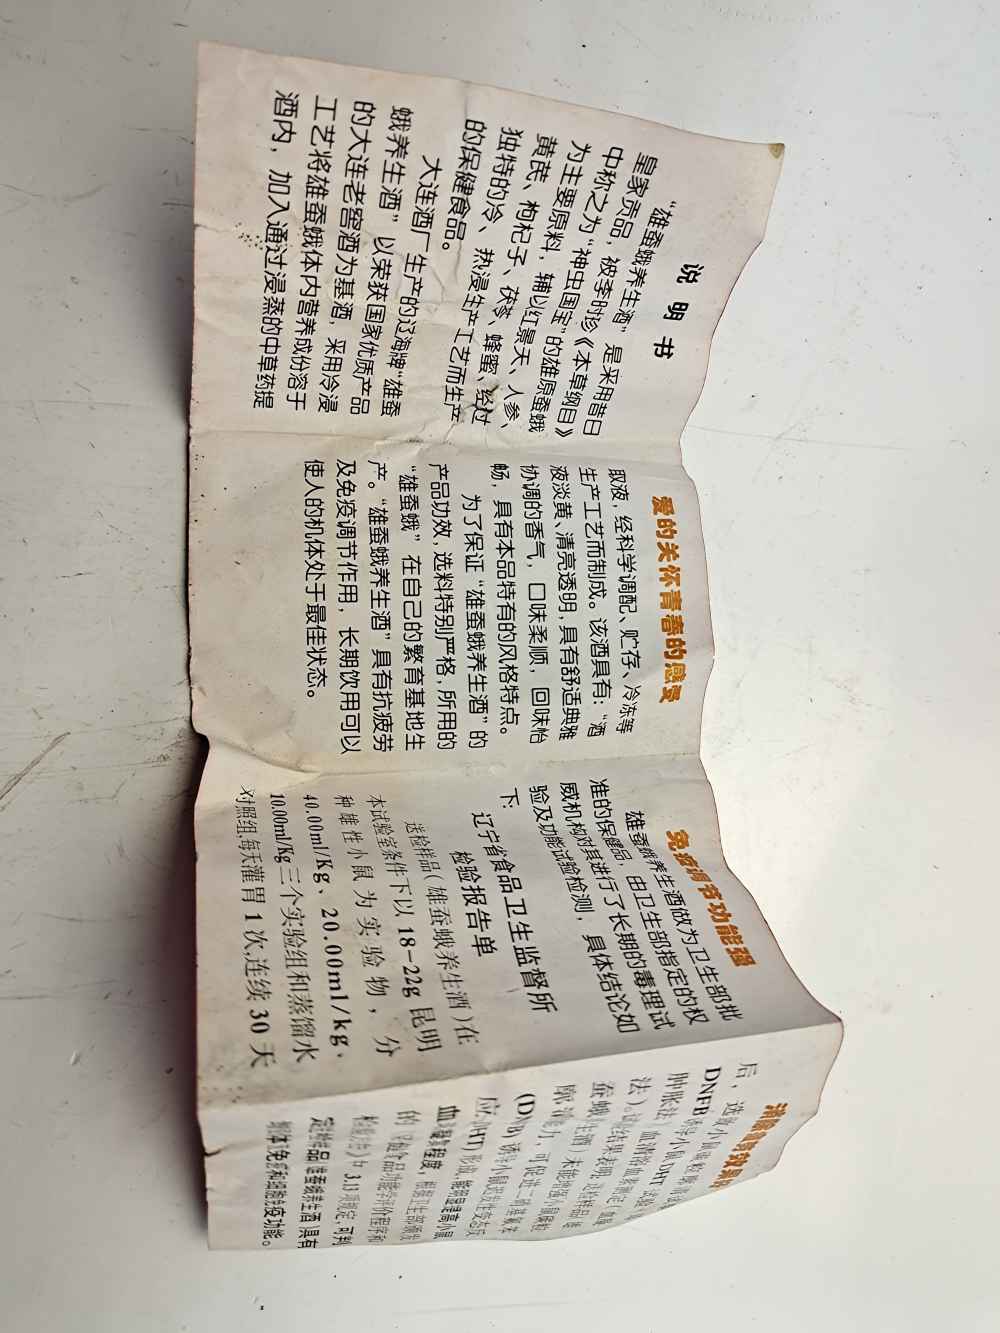 说明书
“雄蚕蛾养生酒”是采用昔日
皇家贡品，被李时珍《本草纲目》
中称之为“神虫国宝”的雄原蚕蛾
为主要原料，辅以红景天、人参、
黄芪、枸杞子、茯苓、蜂蜜、经过
独特的冷、热浸生产工艺而生产
的保健食品。
大连酒厂生产的辽海牌“雄蚕
蛾养生酒”以荣获国家优质产品
的大连老窖酒为基酒，采用冷浸
工艺将雄蚕蛾体内营养成份溶于
酒内，加入通过浸蒸的中草药提
爱的关怀青春的感受
取液，经科学调配、贮存、冷冻等
生产工艺而制成。该酒具有：“酒
液淡黄、清亮透明，具有舒适典雅
协调的香气，口味柔顺，回味怡
畅，具有本品特有的风格特点。
为了保证“雄蚕蛾养生酒”的
产品功效，选料特别严格，所用的
“雄蚕蛾”在自己的繁育基地生
产。“雄蚕蛾养生酒”具有抗疲劳
及免疫调节作用，长期饮用可以
使人的机体处于最佳状态。
免疫调节功能强
雄蚕蛾养生酒做为卫生部批
准的保健品，由卫生部指定的权
威机构对其进行了长期的毒理试
验及功能试验检测，具体结论如
下：
辽宁省食品卫生监督所
检验报告单
送检样品（雄蚕蛾养生酒）在
本试验室条件下以18-22g昆明
种雄性小鼠为实验物，分
40.00ml/Kg、20.00ml/kg、
10.00ml/Kg三个实验组和蒸馏水
对照组，每天灌胃1次，连续30天
后，选
DNFB诱导小鼠DHT
肿胀法）
法）。试验结果表明：送检样品（雄
蚕蛾生酒）未能增强小鼠碳粒
廓清能力，可促进二硝基氟苯
(DNB)诱导小鼠迟发性变态反
应(DHT)形成，能明显提高小鼠
血凝程度，根据卫生部颁发
的《保健食品功能学评价程序和
检验方法》中3.13项规定，可判
定检样品（雄蚕蛾养生酒）具有
细胞免疫功能。